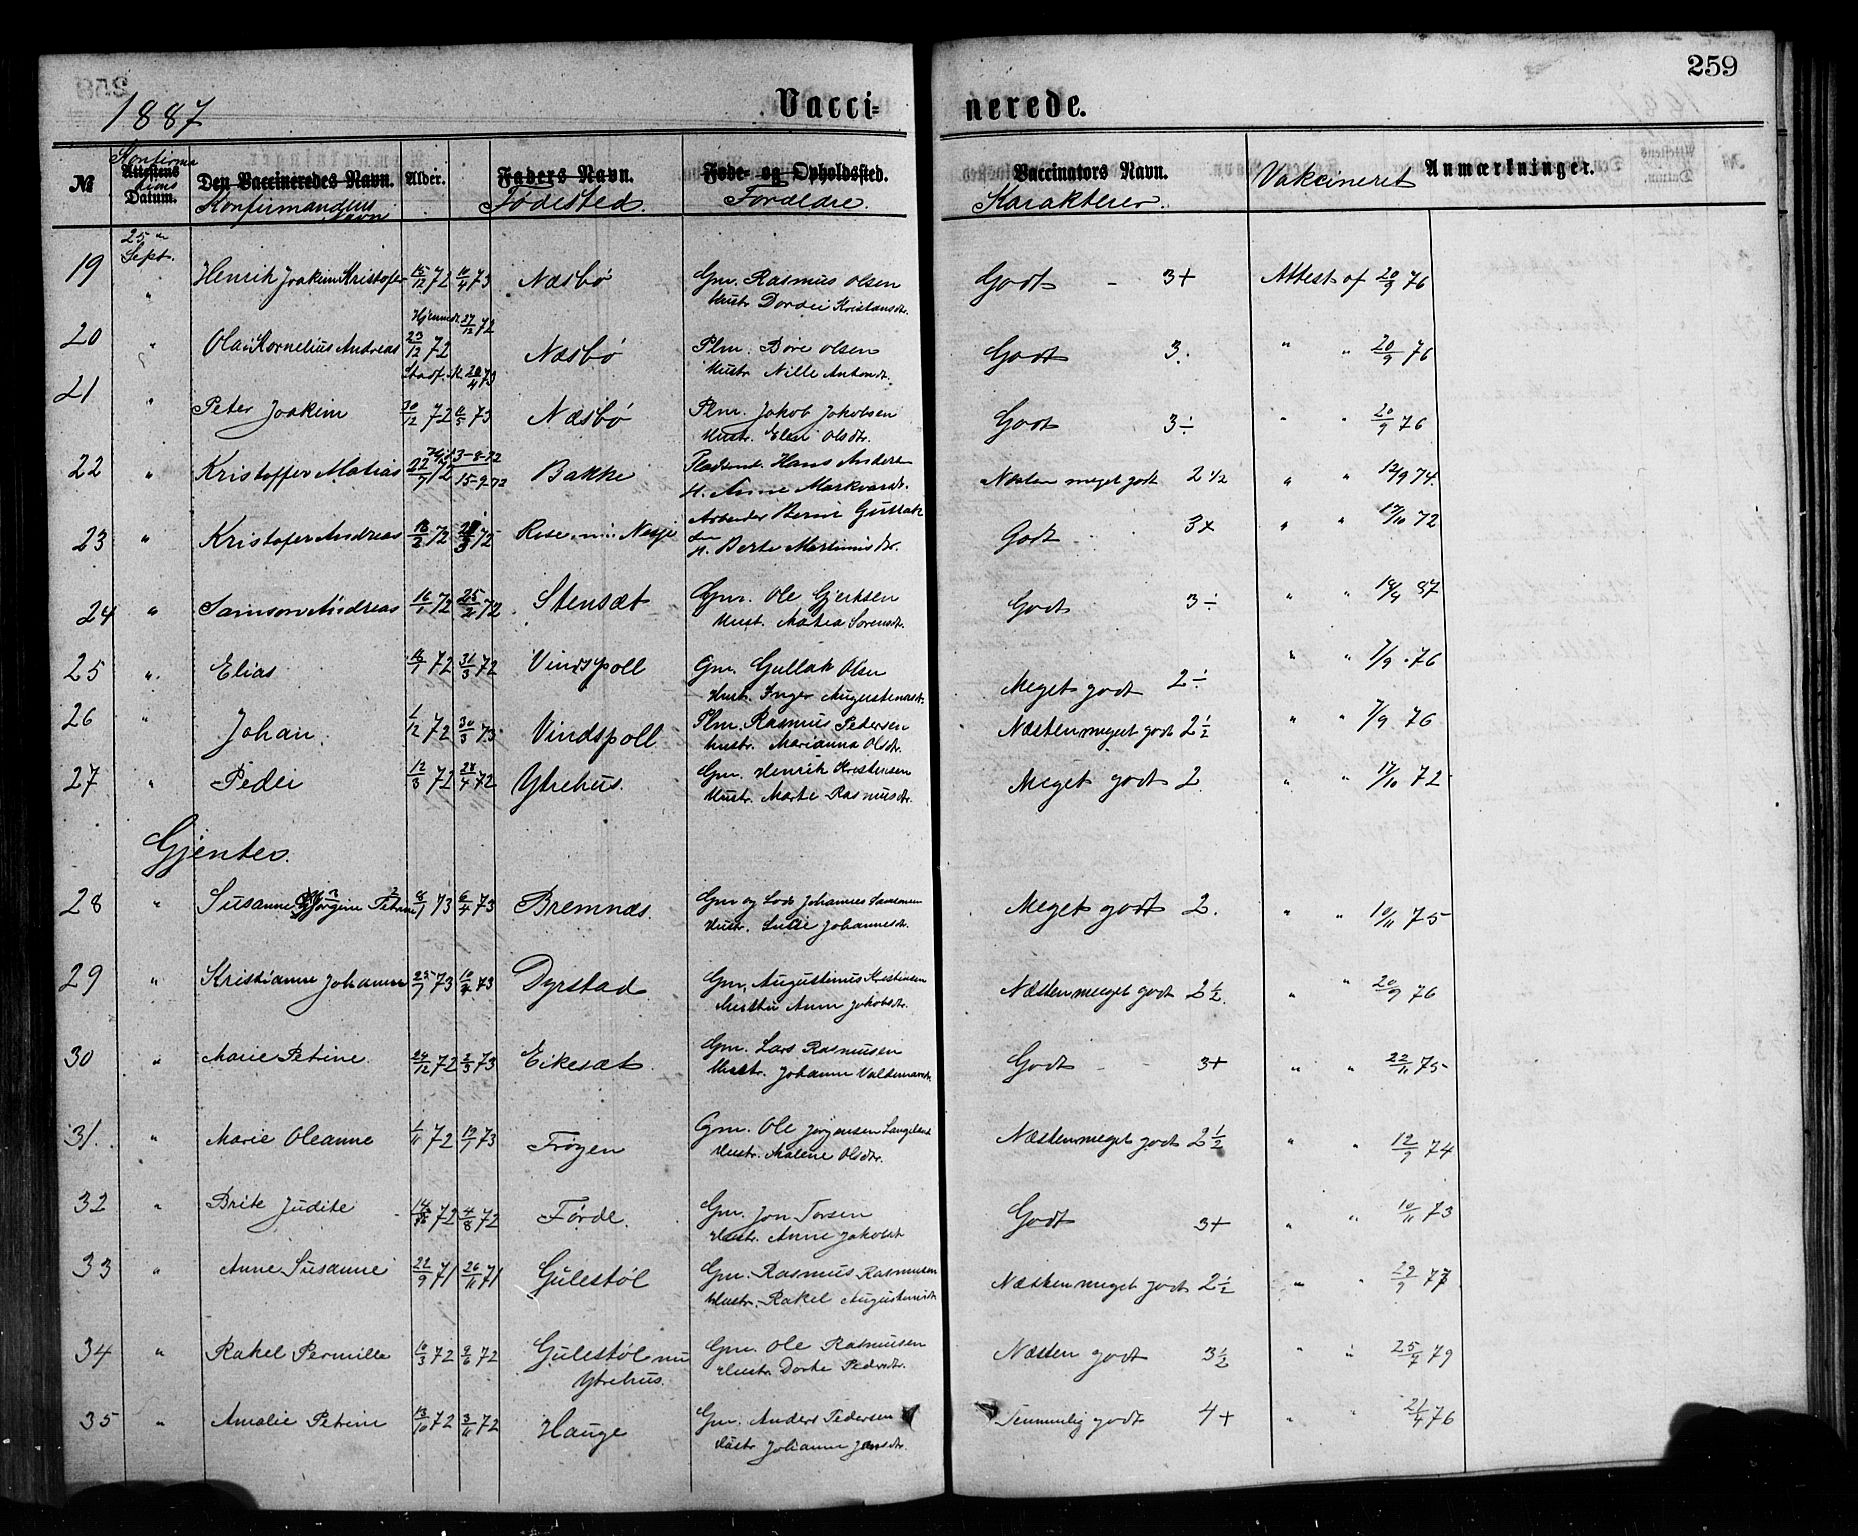 259
1887
Vacci- nerede.
№ Attestens Datum. Den Vaccineredes Navn. Alder. Faders Navn. Føde- og Opholdssted. Vaccinators Navn. Anmærkninger.
Konfirmationes Konfirmandens Navn Fødested. Forældre. Karakterer. Vakcineret
25de Sept.
19 " Henrik Joakim Kristofer 15/12 72 /4 73 Næsbø Gm. Rasmus Olsen Godt - 3+ Attest af 20/9 76
Hustr. Dordei Kristansdr.
Hjemmedt. 27/12 72
20 " Olai Kornelius Andreas 23/12 72 Næsbø Plm. Børe Olsen Godt 3. " " 20/9 76
Stadf. 20/4 73 Hustr. Nille Antondr.
21 " Peter Joakim 30/12 72 /5 73 Næsbø Plm. Jakob Jakobsen Godt 3÷ " " 20/9 76
Hustr. Elen Olsdr.
22 " Kristoffer Matias 22/7 72 3-8-72 Bakke Hans Anders Næsten meget godt 2 1/2 " " 12/9 74
15-9-72 H. Anne Markvardr.
23 " Kristofer Andreas 18/2 72 72 Rise nu Nesje Arbeider Bernt Gullaksen Godt 3+ " " 17/10 72
H. Berte Martinusdr.
24 " Samson Andreas 16/1 72 25/2 72 Stensæt Gm. Ole Gjertsen Godt 3÷ " " 18/4 87
Hust. Matea Sørensdr.
25 " Elias 16/1 72 31/3 72 Vindspoll Gm. Gullak Olsen Meget godt 2÷ " " 7/9 76
Hust. Inger Augustinusdr.
26 " Johan. 1/12 72 30/3 73 Vindspoll Plm. Rasmus Pedersen Næsten meget godt 2 1/2 " " 7/9 76
Hustr. Marianna Olsdr.
27 " Peder 12/3 72 28/4 72 Ytrehus. Gm. Henrik Kristensen Meget godt 2. " " 17/10 72
Hustr. Marte Rasmusdr.
Gjenter.
28 " Susanne Jørgine Petrine 8/1 73 6/4 73 Bremnæs. Gm og Lods Johannes Samsonsen Meget godt 2. " " 10/11 75
Hustr. Lucie Johannesdr.
29 " Kristianne Johanne 25/1 73 10/4 73 Dyrstad Gm. Augustinus Kristensen Næsten meget godt 2 1/2. " " 20/9 76
Husthu Anne Jakobsdr.
30 " Marie Petrine 24/12 72 2/3 73 Eikesæt Gm. Lars Rasmusen Godt - 3+ " " 22/11 75
Hustr. Johanne Valdemarsdr.
31. " Marie Oleanne 1/11 72 19/1 73 Frøyen Gm. Ole Jørgensen Langeland Næsten meget godt 2 1/2 " " 12/9 74
Hustr. Malene Olsdr.
32 " Brite Judite 72 4/8 72 Førde. Gm. Jon Torsen Godt 3+ " " 10/11 73
Hustr. Anne Jakobsd
33 " Anne Susanne 22/9 71 26/11 71 Gulestøl Gm. Rasmus Rasmusen Næsten meget godt 2 1/2 " " 29/9 77
Hustr. Rakel Augustinusdr
34 " Rakel Pernille 10/3 72 9/6 72 Gulestøl nu Gm. Ole Rasmusen Næsten godt 3 1/2 " " 25/7 79
Ytrehus. Hustr. Dorte Pedersdr.
35 " Amalie Petrine 13/10 72 3/11 72 Hauge Gm. Anders Pedersen Temmelig godt 4+ " " 21/4 76
Hustr Johanne Jansdr.